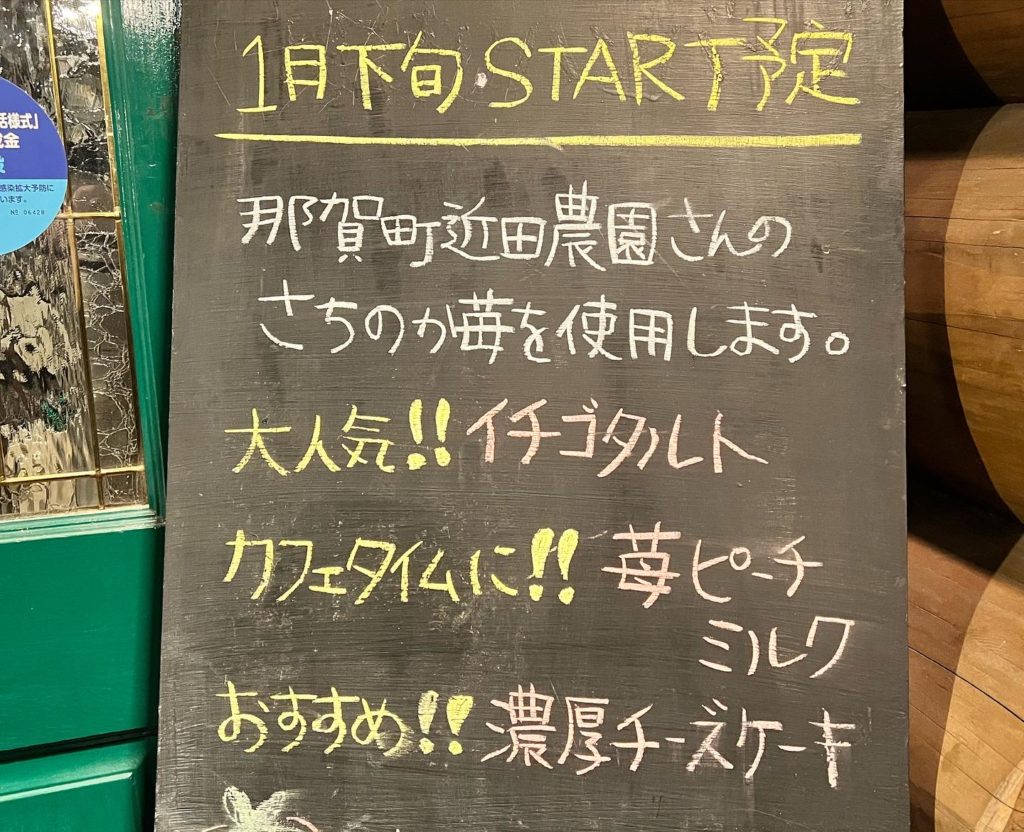 1月下旬 START予定
那賀町近田農園さんの
さちのか苺を使用します。
大人気!! イチゴタルト
カフェタイムに!! 苺ピーチ
ミルク
おすすめ!! 濃厚チーズケーキ
活様式」
金
感染拡大予防に
います。
№ 06428